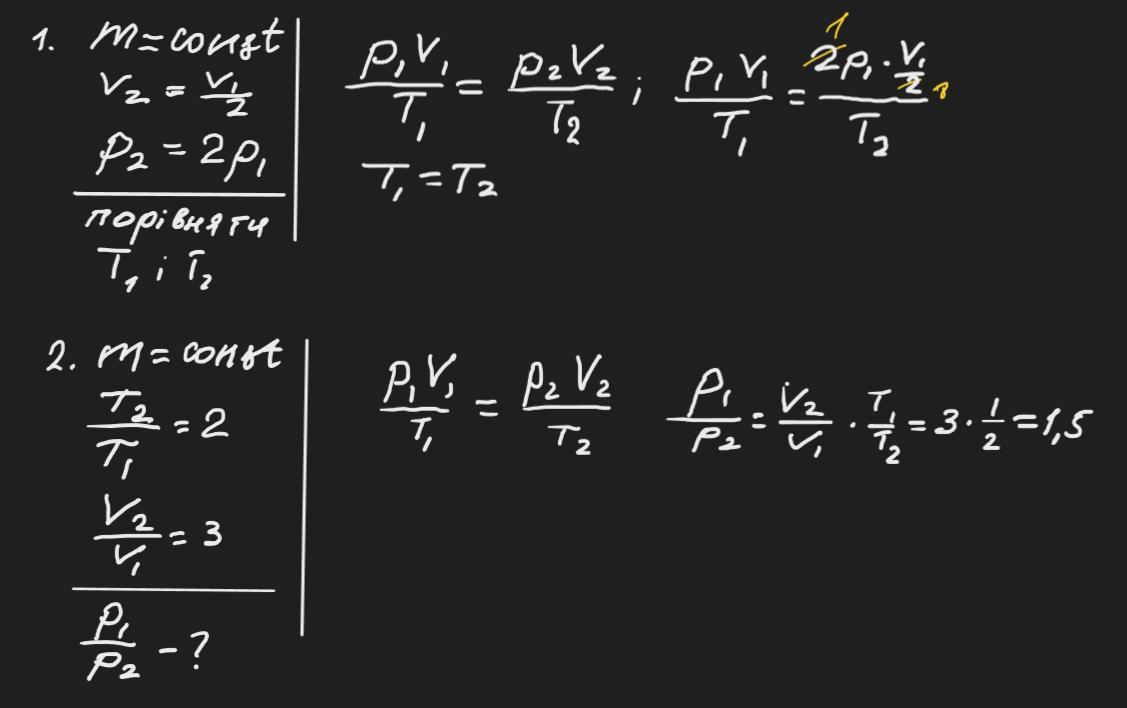 1. m = const
V₂ = V₁/2
p₂ = 2p₁
порівняти
T₁ і T₂
p₁V₁/T₁ = p₂V₂/T₂ ; p₁V₁/T₁ = 2p₁ · V₁/2 / T₂
1
1
T₁ = T₂
2. m = const
T₂/T₁ = 2
V₂/V₁ = 3
p₁/p₂ - ?
p₁V₁/T₁ = p₂V₂/T₂ p₁/p₂ = V₂/V₁ · T₁/T₂ = 3 · 1/2 = 1,5